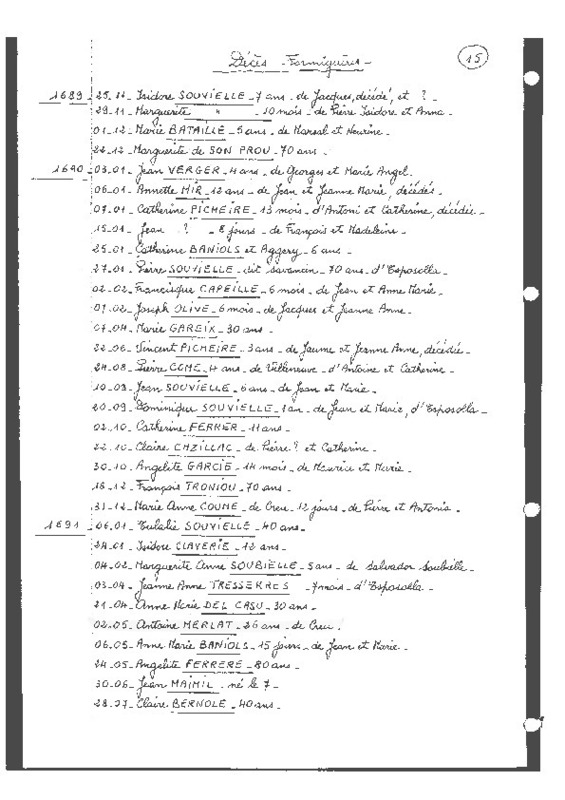 Décès - Formiguères -
15
1689 - 25.11 - Isidore SOUVIELLE - 7 ans - de Jacques, décédé, et ? -
29.11 - Marguerite " - 10 mois - de Pierre Isidore et Anna -
01.12 - Marie BATAILLE - 5 ans - de Marsal et
22.12 - Marguerite de SON PROU - 70 ans -
1690 - 03.01 - Jean VERGER - 4 ans - de Georges et Marie Angel -
06.01 - Annette MIR - 12 ans - de Jean et Jeanne Marie, décédés -
07.01 - Catherine PICHEIRE - 13 mois - d'Antoni et Catherine, décédée -
15.01 - Jean ? - 8 jours - de François et Madeleine -
25.01 - Catherine BANIOLS et Aggery - 6 ans -
27.01 - Pierre SOUVIELLE - dit - 70 ans - d'Esposolla -
02.02 - Francisque CAPEILLE - 6 mois - de Jean et Anne Marie -
07.02 - Joseph OLIVE - 6 mois - de Jacques et Jeanne Anne -
07.04 - Marie GAREIX - 30 ans -
22.06 - Vincent PICHEIRE - 3 ans - de Jaume et Jeanne Anne, décédée -
24.08 - Pierre COME - 4 ans - de Villeneuve - d'Antoine et Catherine -
10.09 - Jean SOUVIELLE - 6 ans - de Jean et Marie -
20.09 - Dominique SOUVIELLE - 1 an - de Jean et Marie, d'Esposolla -
02.10 - Catherine FERRER - 11 ans -
22.10 - Claire CAZILLAC - de Pierre ? et Catherine -
30.10 - Angelite GARCIE - 14 mois - de Maurice et Marie -
16.12 - François TRONIOU - 70 ans -
31.12 - Marie Anne COUME - de Creu - 12 jours - de Pierre et Antonia -
1691 - 06.01 - Eulalie SOUVIELLE - 40 ans -
24.01 - Isidore CLAVERIE - 12 ans -
04.02 - Marguerite Anne SOUBIELLE - 5 ans - de Salvador Soubielle -
03.04 - Jeanne Anne TRESSERRES - 7 mois - d'Esposolla -
21.04 - Anne Marie DEL CASU - 30 ans -
02.05 - Antoine MERLAT - 26 ans - de Creu -
06.05 - Anne Marie BANIOLS - 15 jours - de Jean et Marie -
24.05 - Angelite FERRERE - 80 ans -
30.06 - Jean MAIMIL - né le 7 -
28.07 - Claire BERNOLE - 40 ans -